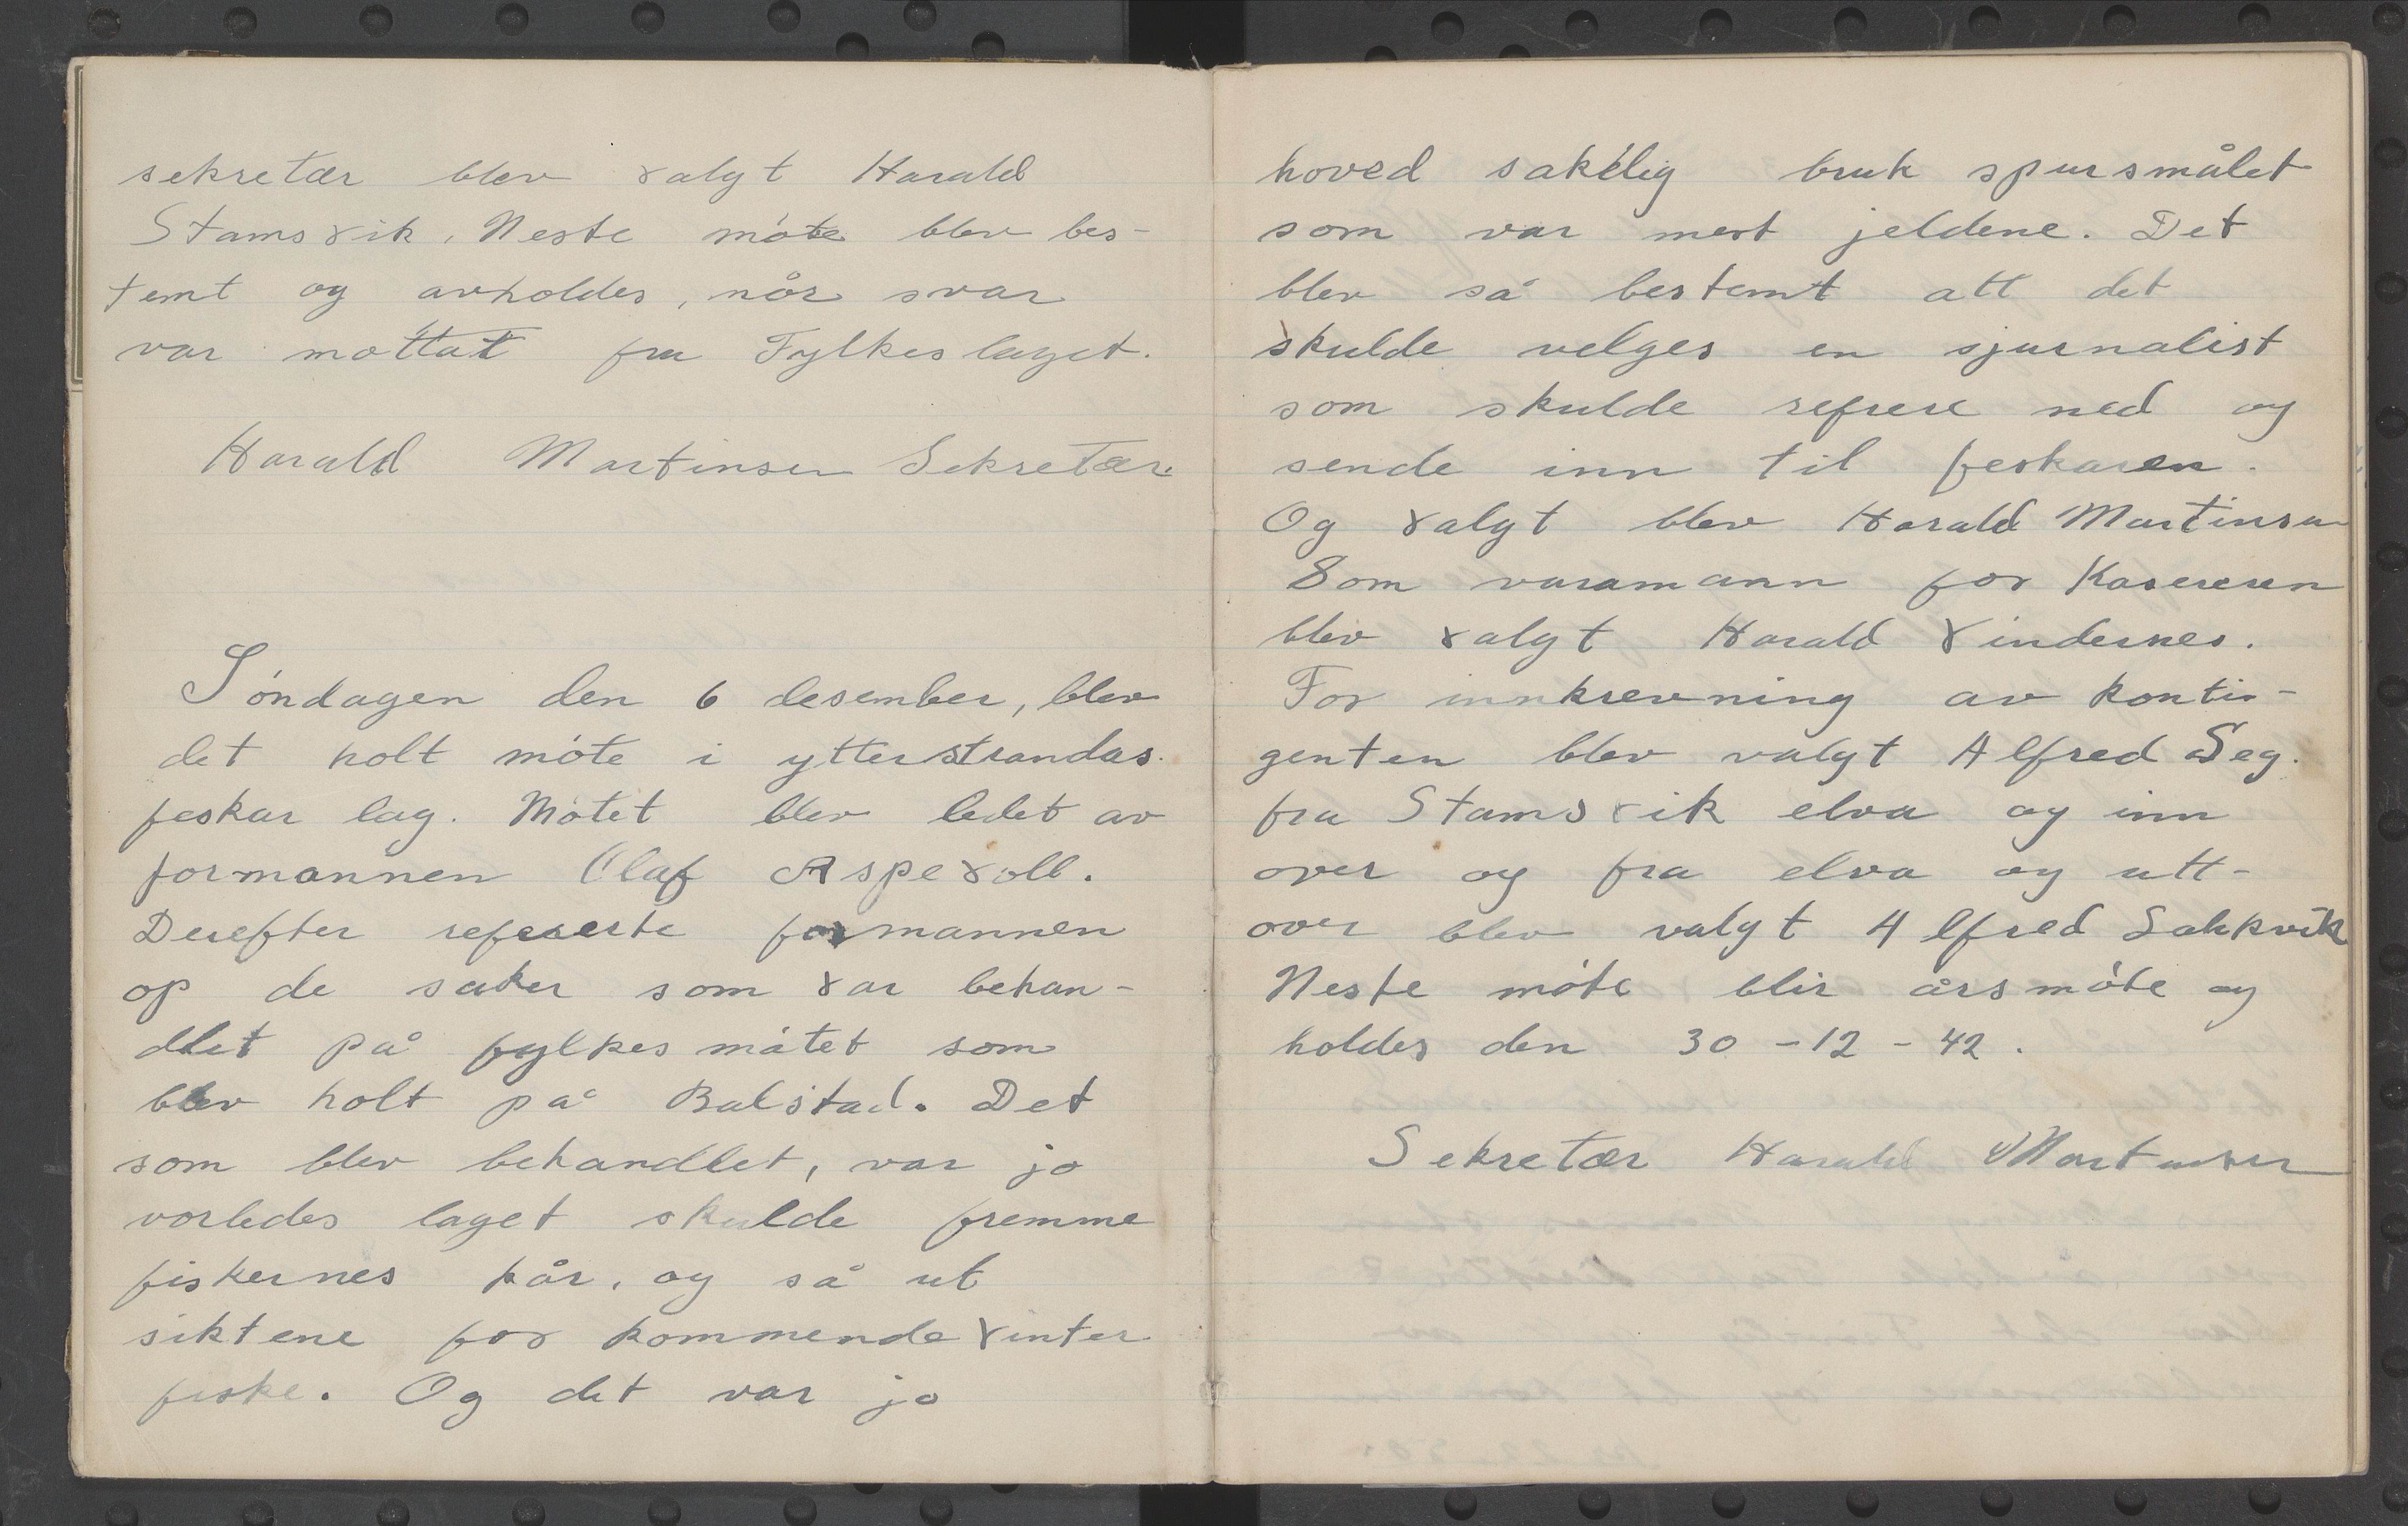 sekretær blev valgt Harald
Stamsvik, Neste møte blev bes-
temt og avholdes, når svar
var mottat fra Fylkeslaget.
Harald Martinsen Sekretær.
Søndagen den 6 desember, blev
det holt møte i ytterstrandas.
feskar lag. Møtet blev ledet av
formannen Olaf Aspevoll.
Derefter refererte formannen
op de saker som var behan-
dlet på fylkes møtet som
blev holt på Balstad. Det
som blev behandlet, var jo
vorledes laget skulde fremme
fiskernes kår, og så ut
siktene for kommende vinter
fiske. Og det var jo
hoved saklig bruk spursmålet
som var mest jeldene. Det
blev så bestemt att det
skulde velges en sjurnalist
som skulde refrere ned og
sende inn til feskaren.
Og valgt blev Harald Martinsen
Som varamann for Kasereren
blev valgt Harald Vindernes.
For innkrevning av kontin-
genten blev valgt Alfred Seg.
fra Stamsvik elva og inn
over og fra elva og utt-
over blev valgt Alfred Sakkvik
Neste møte blir årsmøte og
holdes den 30-12-42.
Sekretær Harald Martinsen